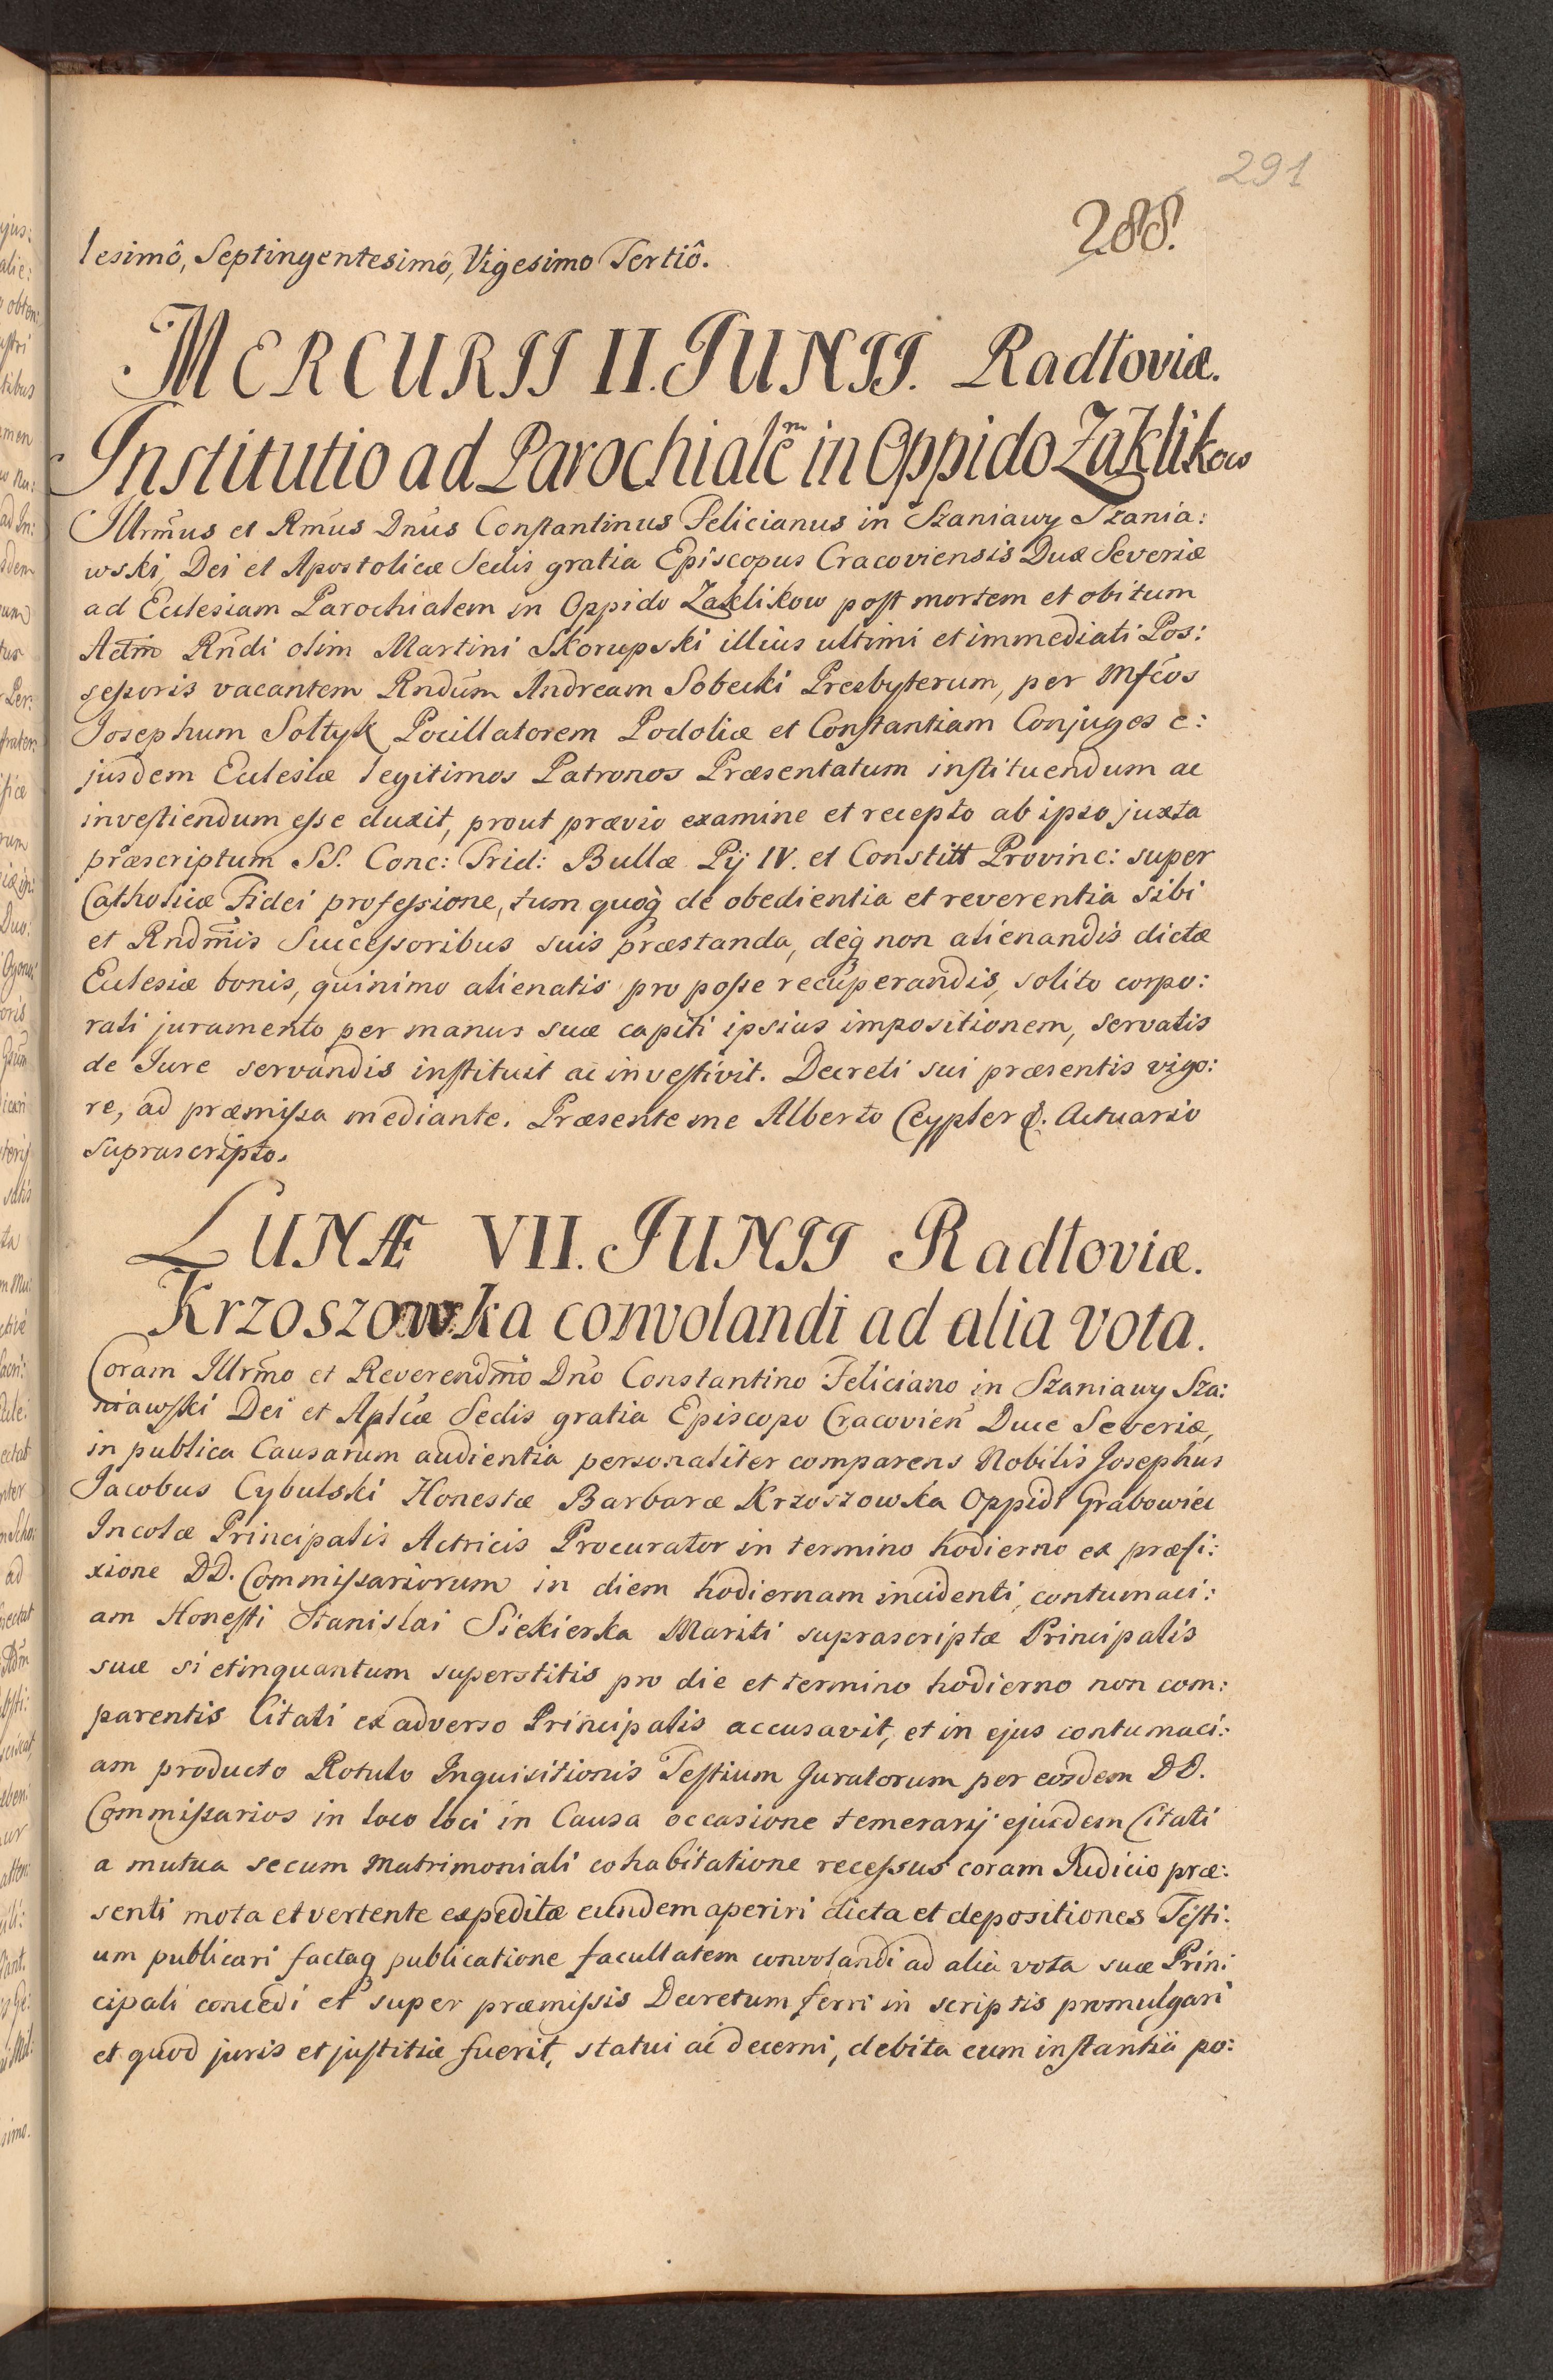 291
288.
lesimô, Septingentesimô, Vigesimo Tertiô.
MERCURII II. JUNII. Radłoviæ.
Institutio ad Parochialem in Oppido Zaklikow
Illrm̃us et Rm̃us Dnũs Constantinus Felicianus in Szaniawy Szania:
wski, Dei et Apostolicæ Sedis gratia Episcopus Cracoviensis Dux Severiæ
ad Ecclesiam Parochialem in Oppido Zaklikow post mortem et obitum
Adm̃ Rñdi olim Martini Skorupski illius ultimi et immediati Pos:
sessoris vacantem Rndũm Andream Sobecki Presbyterum, per Mfcõs
Josephum Sołtyk Pocillatorem Podoliæ et Constantiam Conjuges e:
jusdem Eclesiæ legitimos Patronos Præsentatum instituendum ac
investiendum esse duxit, prout prævio examine et recepto ab ipso juxta
præscriptum SS. Conc: Trid: Bullæ Pij IV. et Constitt Provinc: super
Catholicæ Fidei professione, tum quoq̀ de obedientia et reverentia sibi
et Rndm̃is Successoribus suis præstanda, deq̀ non alienandis dictæ
Eclesiæ bonis, quinimo alienatis pro posse recuperandis, solito corpo:
rali juramento per manus suæ capiti ipsius impositionem, servatis
de Jure servandis instituit ac investivit. Decreti sui præsentis vigo:
re, ad præmissa mediante. Præsente me Alberto Ceypler &. Actuario
suprascripto.
LUNÆ VII. JUNII Radłoviæ.
Krzoszowska convolandi ad alia vota.
Coram Illrm̃o et Reverendm̃o Dnõ Constantino Feliciano in Szaniawy Sza:
niawski Dei et Aplcæ Sedis gratia Episcopo Cracovien̄ Duce Severiæ,
in publica Causarum audientia personaliter comparens Nobilis Josephus
Jacobus Cybulski Honestæ Barbaræ Krzoszowska Oppidi Grabowiec
Incolæ Principalis Actricis Procurator in termino hodierno ex præfi:
xione DD. Commissariorum in diem hodiernam incidenti, contumaci:
am Honesti Stanislai Siekierka Mariti suprascriptæ Principalis
suæ si etinquantum superstitis pro die et termino hodierno non com:
parentis Citati ex adverso Principalis accusavit, et in ejus contumaci:
am producto Rotulo Inquisitionis Testium Juratorum per eosdem DD.
Commissarios in loco loci in Causa occasione temerarij ejusdem Citati
a mutua secum Matrimoniali cohabitatione recessus coram Judicio præ:
senti mota et vertente expeditæ eundem aperiri dicta et depositiones Testi:
um publicari factaq publicatione facultatem convolandi ad alia vota suæ Prin:
cipali concedi et super præmissis Decretum ferri in scriptis promulgari
et quod juris et justitiæ fuerit, statui ac decerni, debita cum instantia po: